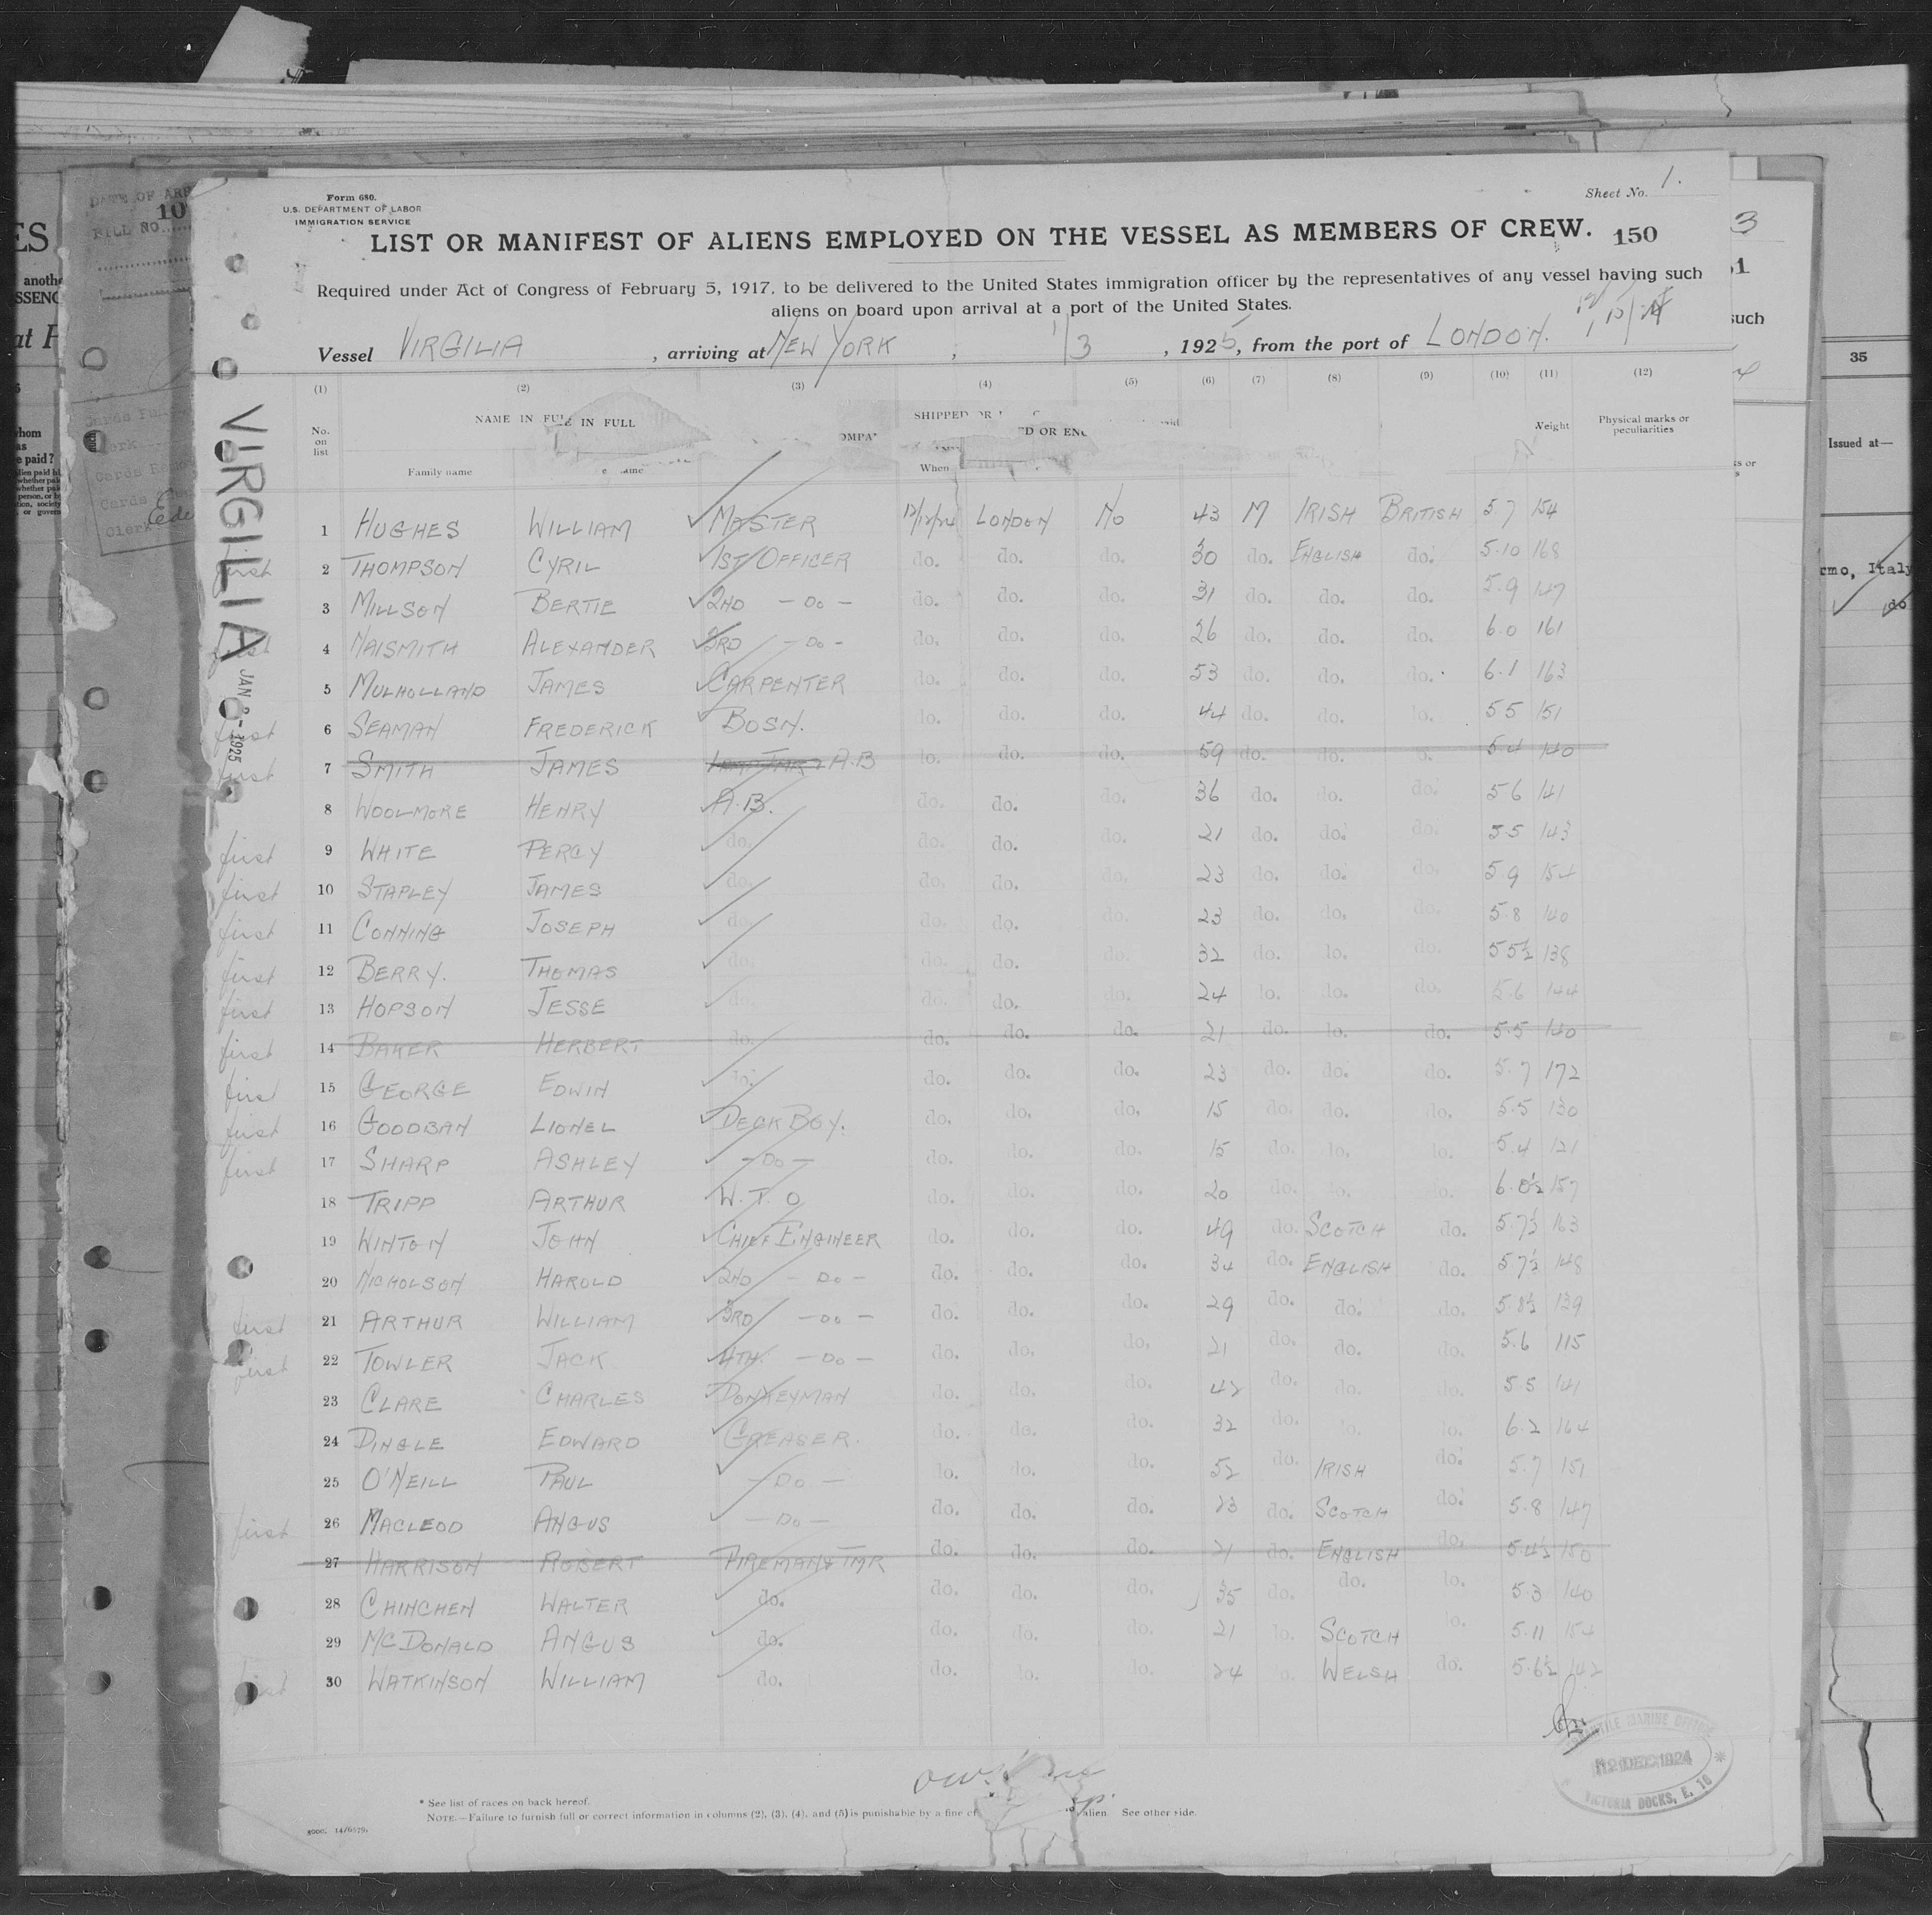 Form 680.
U.S. DEPARTMENT OF LABOR
IMMIGRATION SERVICE
Sheet No. 1.
LIST OR MANIFEST OF ALIENS EMPLOYED ON THE VESSEL AS MEMBERS OF CREW. 150
Required under Act of Congress of February 5, 1917, to be delivered to the United States immigration officer by the representatives of any vessel having such
aliens on board upon arrival at a port of the United States.
Vessel VIRGILIA, arriving at NEW YORK, 1/3, 1925, from the port of LONDON.
(1) (2) (3) (4) (5) (6) (7) (8) (9) (10) (11) (12)
No. on list NAME IN FULL SHIPPED OR Weight Physical marks or peculiarities
Family name When
1 HUGHES WILLIAM MASTER 12/12/24 LONDON NO 43 M IRISH BRITISH 5.7 154
first 2 THOMPSON CYRIL 1ST OFFICER do. do. do. 30 do. ENGLISH do. 5.10 168
3 MILLSON BERTIE 2ND - DO - do. do. do. 31 do. do. do. 5.9 147
first 4 NAISMITH ALEXANDER 3RD - DO - do. do. do. 26 do. do. do. 6.0 161
5 MULHOLLAND JAMES CARPENTER do. do. do. 53 do. do. do. 6.1 163
first 6 SEAMAN FREDERICK BOSN. do. do. do. 44 do. do. do. 5.5 151
first 7 SMITH JAMES A.B do. do. do. 59 do. do. do. 5.4 140
8 WOOLMORE HENRY A.B. do. do. do. 36 do. do. do. 5.6 141
first 9 WHITE PERCY do. do. do. do. 21 do. do. do. 5.5 143
first 10 STAPLEY JAMES do. do. do. do. 23 do. do. do. 5.9 154
first 11 CONNING JOSEPH do. do. do. do. 23 do. do. do. 5.8 140
first 12 BERRY. THOMAS do. do. do. do. 32 do. do. do. 5.5½ 138
first 13 HOPSON JESSE do. do. do. do. 24 do. do. do. 5.6 144
first 14 BAKER HERBERT do. do. do. do. 21 do. do. do. 5.5 140
first 15 GEORGE EDWIN do. do. do. do. 23 do. do. do. 5.7 172
first 16 GOODBAN LIONEL DECK BOY. do. do. do. 15 do. do. do. 5.5 130
first 17 SHARP ASHLEY - DO - do. do. do. 15 do. do. do. 5.4 121
18 TRIPP ARTHUR W.T.O do. do. do. 20 do. do. do. 6.0½ 157
19 WINTON JOHN CHIEF ENGINEER do. do. do. 49 do. SCOTCH do. 5.7½ 163
20 NICHOLSON HAROLD 2ND - DO - do. do. do. 34 do. ENGLISH do. 5.7½ 148
first 21 ARTHUR WILLIAM 3RD - DO - do. do. do. 29 do. do. do. 5.8½ 139
first 22 TOWLER JACK 4TH. - DO - do. do. do. 21 do. do. do. 5.6 115
23 CLARE CHARLES DONKEYMAN do. do. do. 42 do. do. do. 5.5 141
24 DINGLE EDWARD GREASER. do. do. do. 32 do. do. do. 6.2 164
25 O'NEILL PAUL - DO - do. do. do. 52 do. IRISH do. 5.7 151
first 26 MACLEOD ANGUS - DO - do. do. do. 23 do. SCOTCH do. 5.8 147
27 HARRISON ROBERT FIREMAN & TMR do. do. do. 21 do. ENGLISH do. 5.4½ 150
28 CHINCHEN WALTER do. do. do. do. 35 do. do. do. 5.3 140
29 MCDONALD ANGUS do. do. do. do. 21 do. SCOTCH do. 5.11 154
first 30 WATKINSON WILLIAM do. do. do. do. 24 do. WELSH do. 5.6½ 142
VIRGILIA
JAN 3 - 1925
MERCANTILE MARINE OFFICE
12 DEC 1924
VICTORIA DOCKS, E. 16
* See list of races on back hereof.
NOTE.—Failure to furnish full or correct information in columns (2), (3), (4), and (5) is punishable by a fine of alien. See other side.
35
Issued at—
rmo, Italy
do